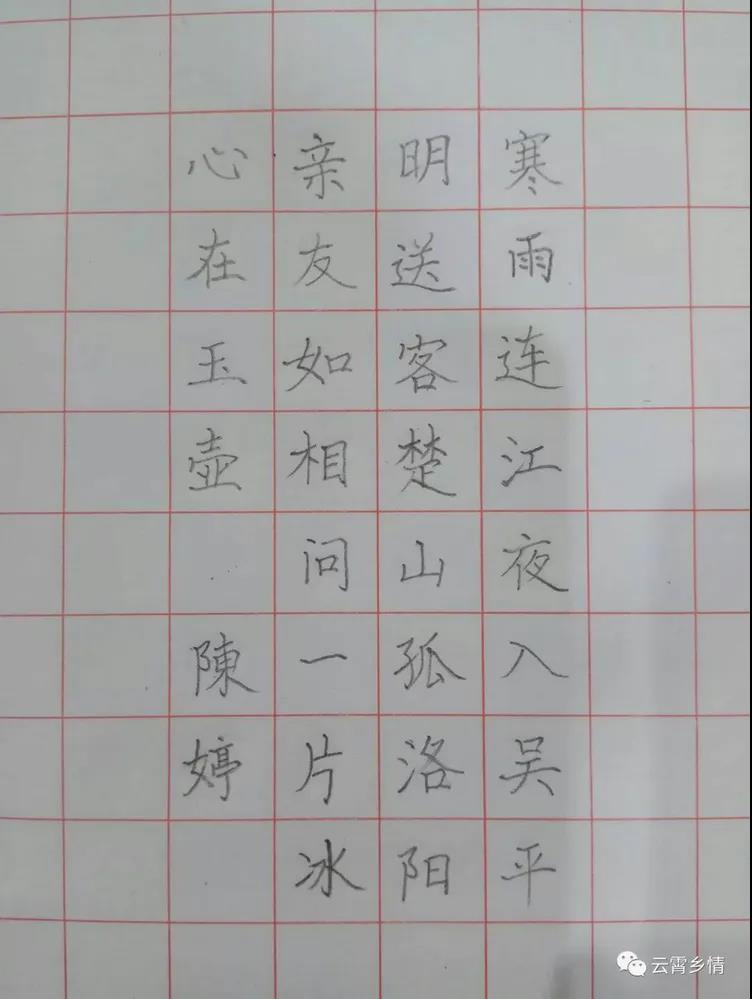 寒雨连江夜入吴平
明送客楚山孤洛阳
亲友如相问一片冰
心在玉壶 陳婷
云霄乡情